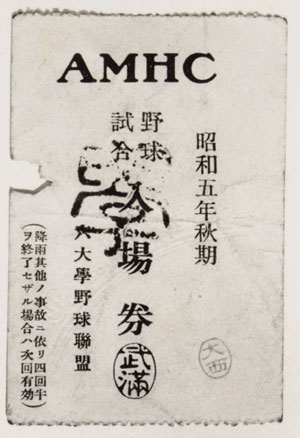 AMHC
昭和五年秋期
野球
試合
入場券
武滿
大西
六大學野球聯盟
(降雨其他ノ事故ニ依リ四回半
ヲ終了セザル場合ハ次回有効)